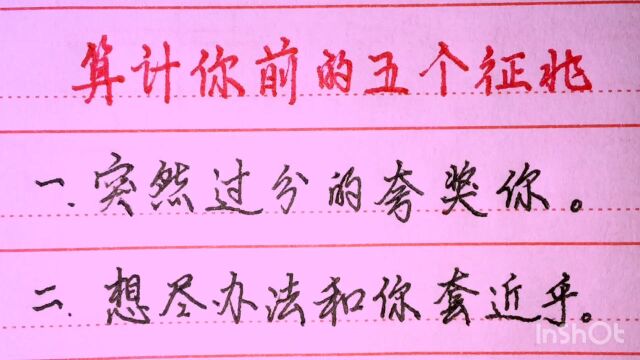 算计你前的五个征兆
一.突然过分的夸奖你。
二.想尽办法和你套近乎。
InShOt